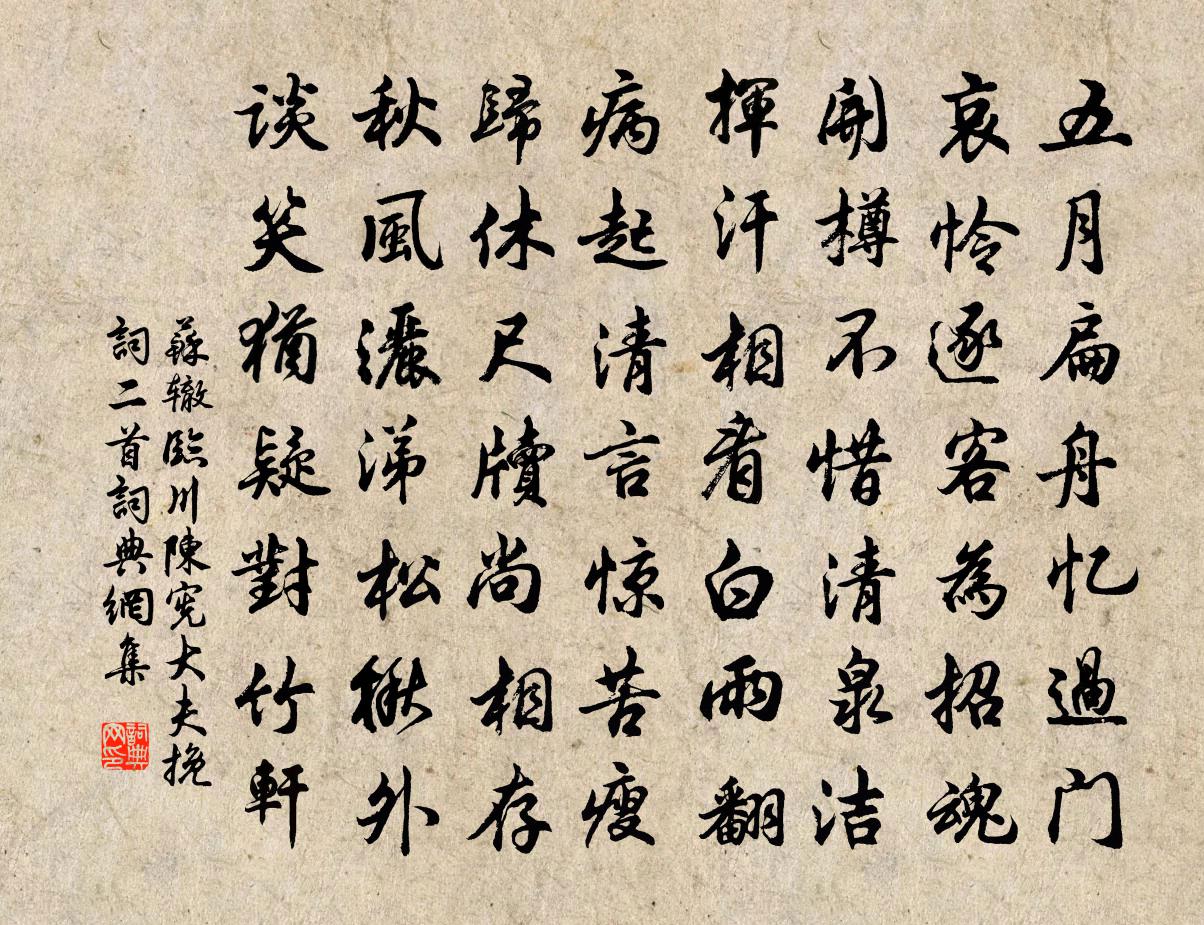 五月扁舟忆過门
哀怜逐客為招魂
開樽不惜清泉洁
揮汗相看白雨翻
病起清言惊苦瘦
歸休尺牘尚相存
秋風灑涕松楸外
谈笑猶疑對竹軒
蘇辙臨川陳宪大夫挽
詞二首詞典網集
詞典网印